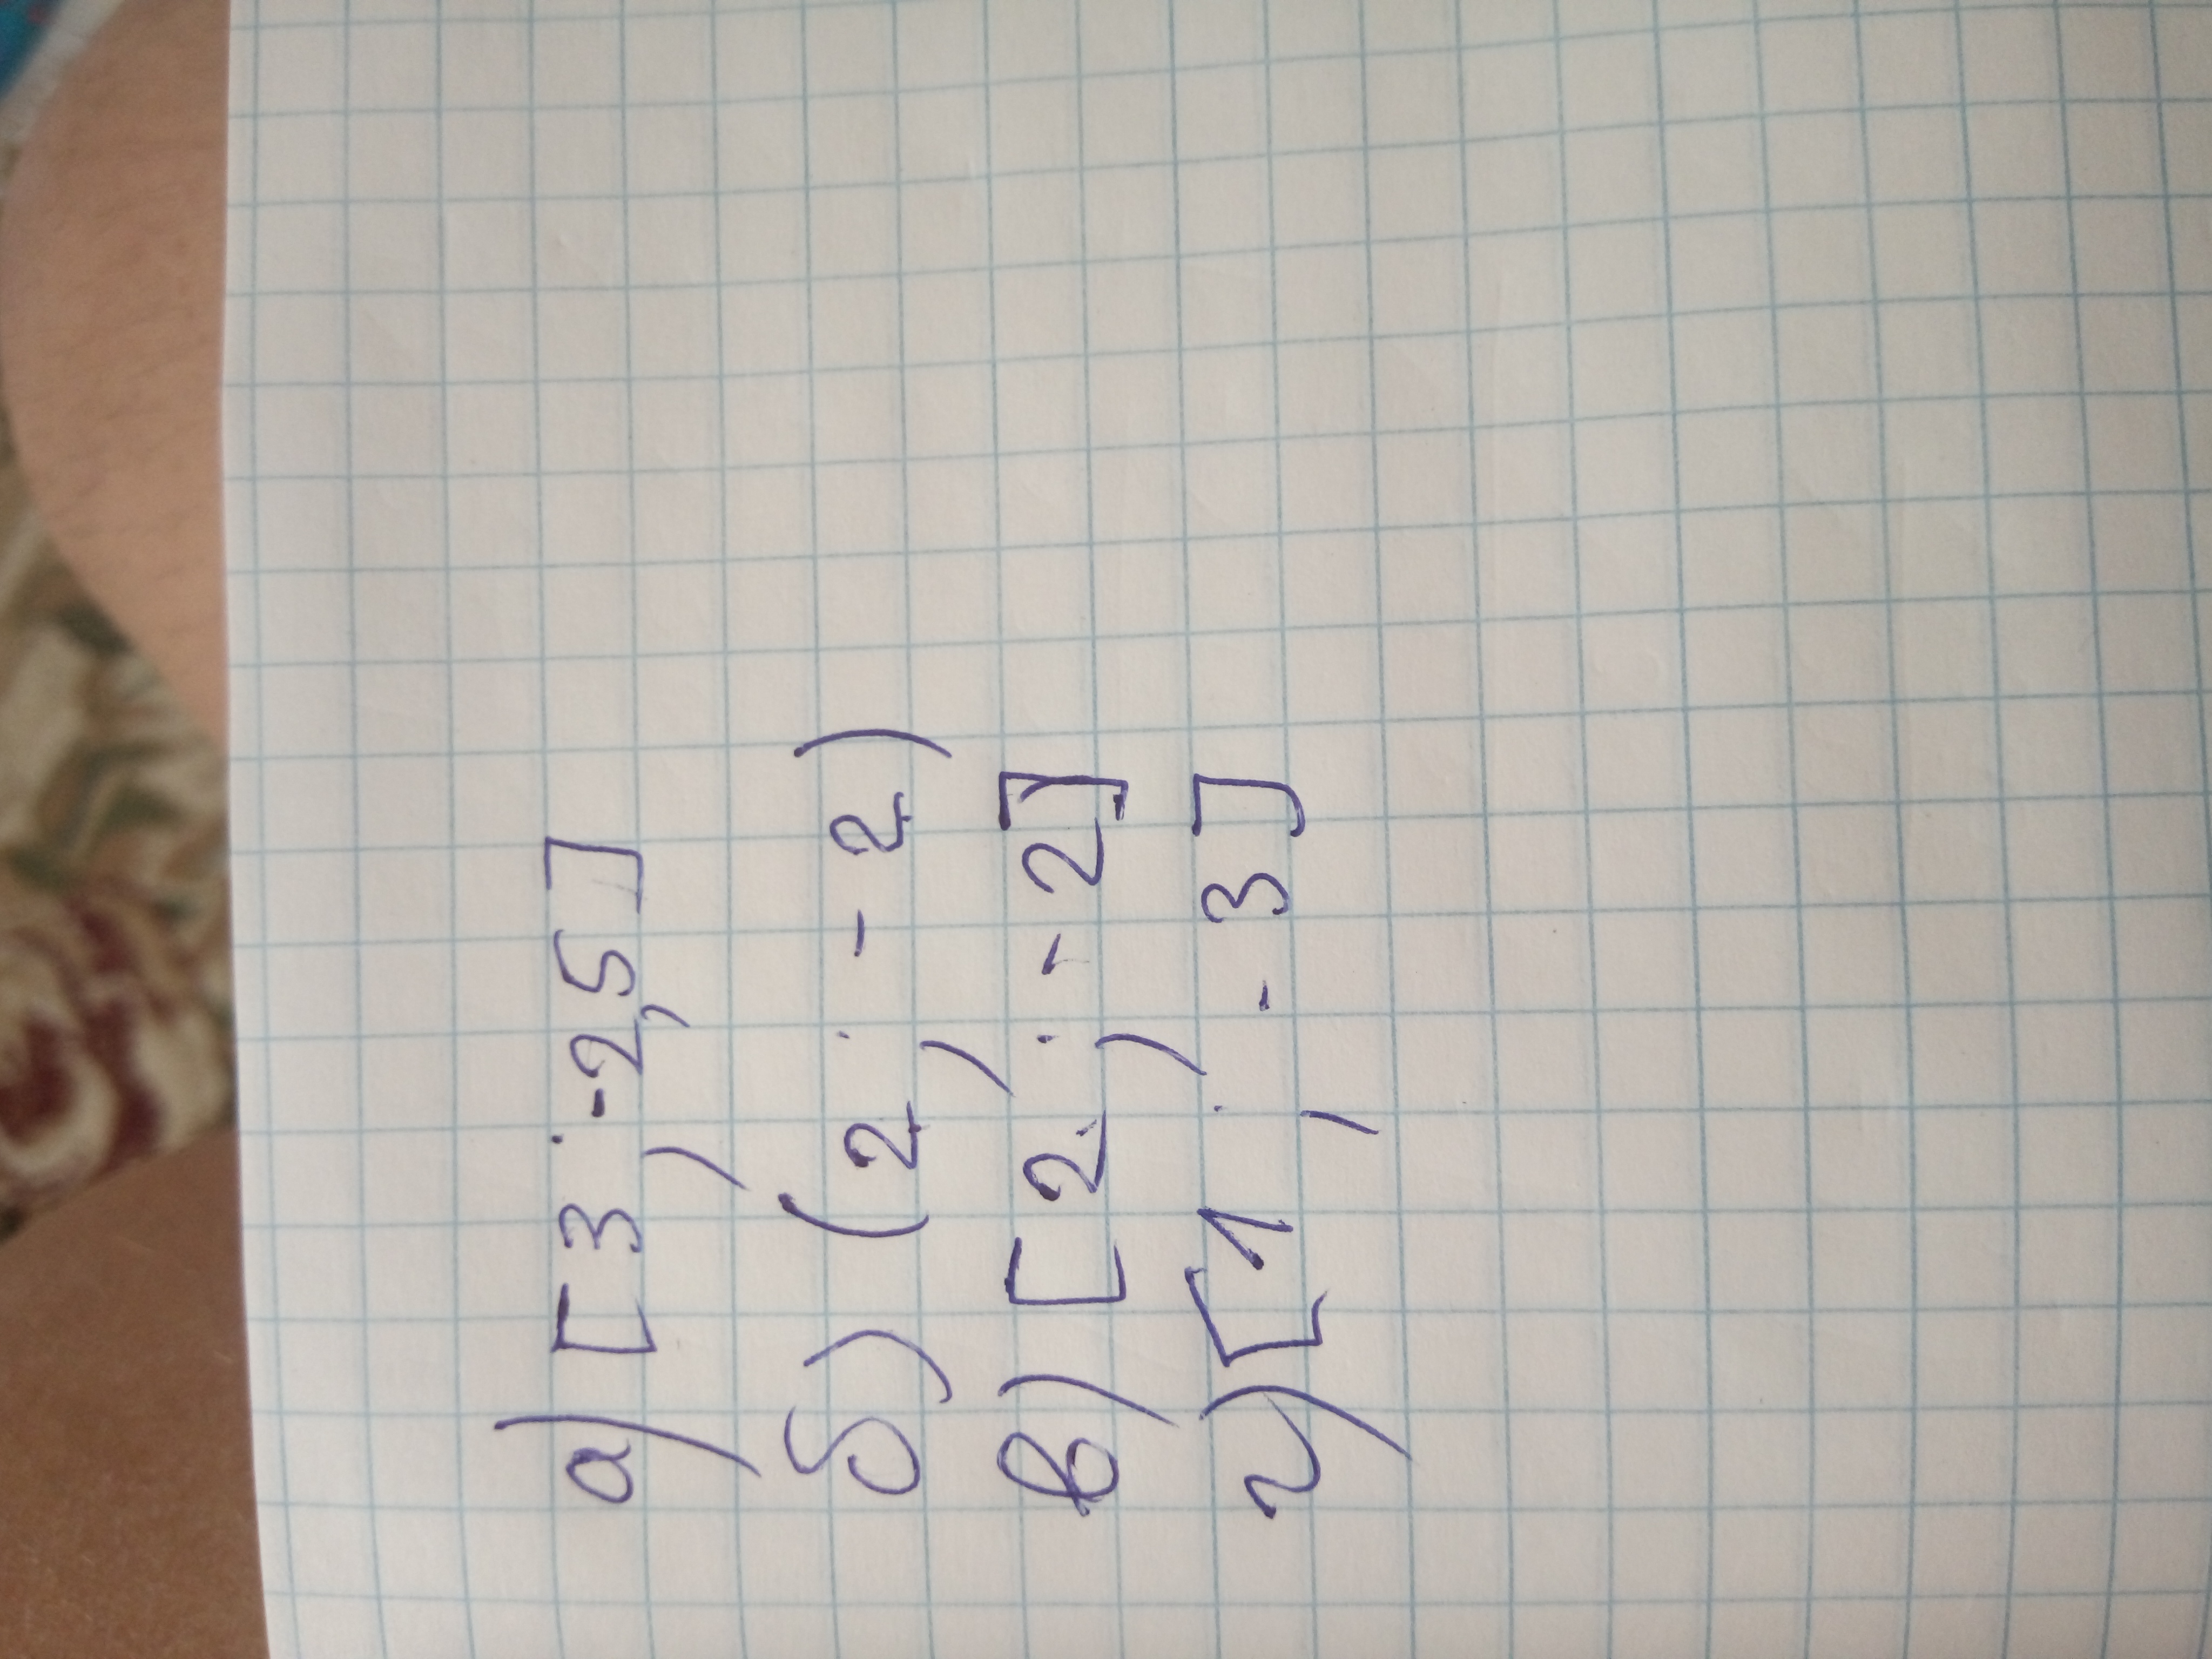 а) [3 ; -2,5]
б) (2 ; - 2)
в) [2 ; - 2]
г) [1 ; - 3]